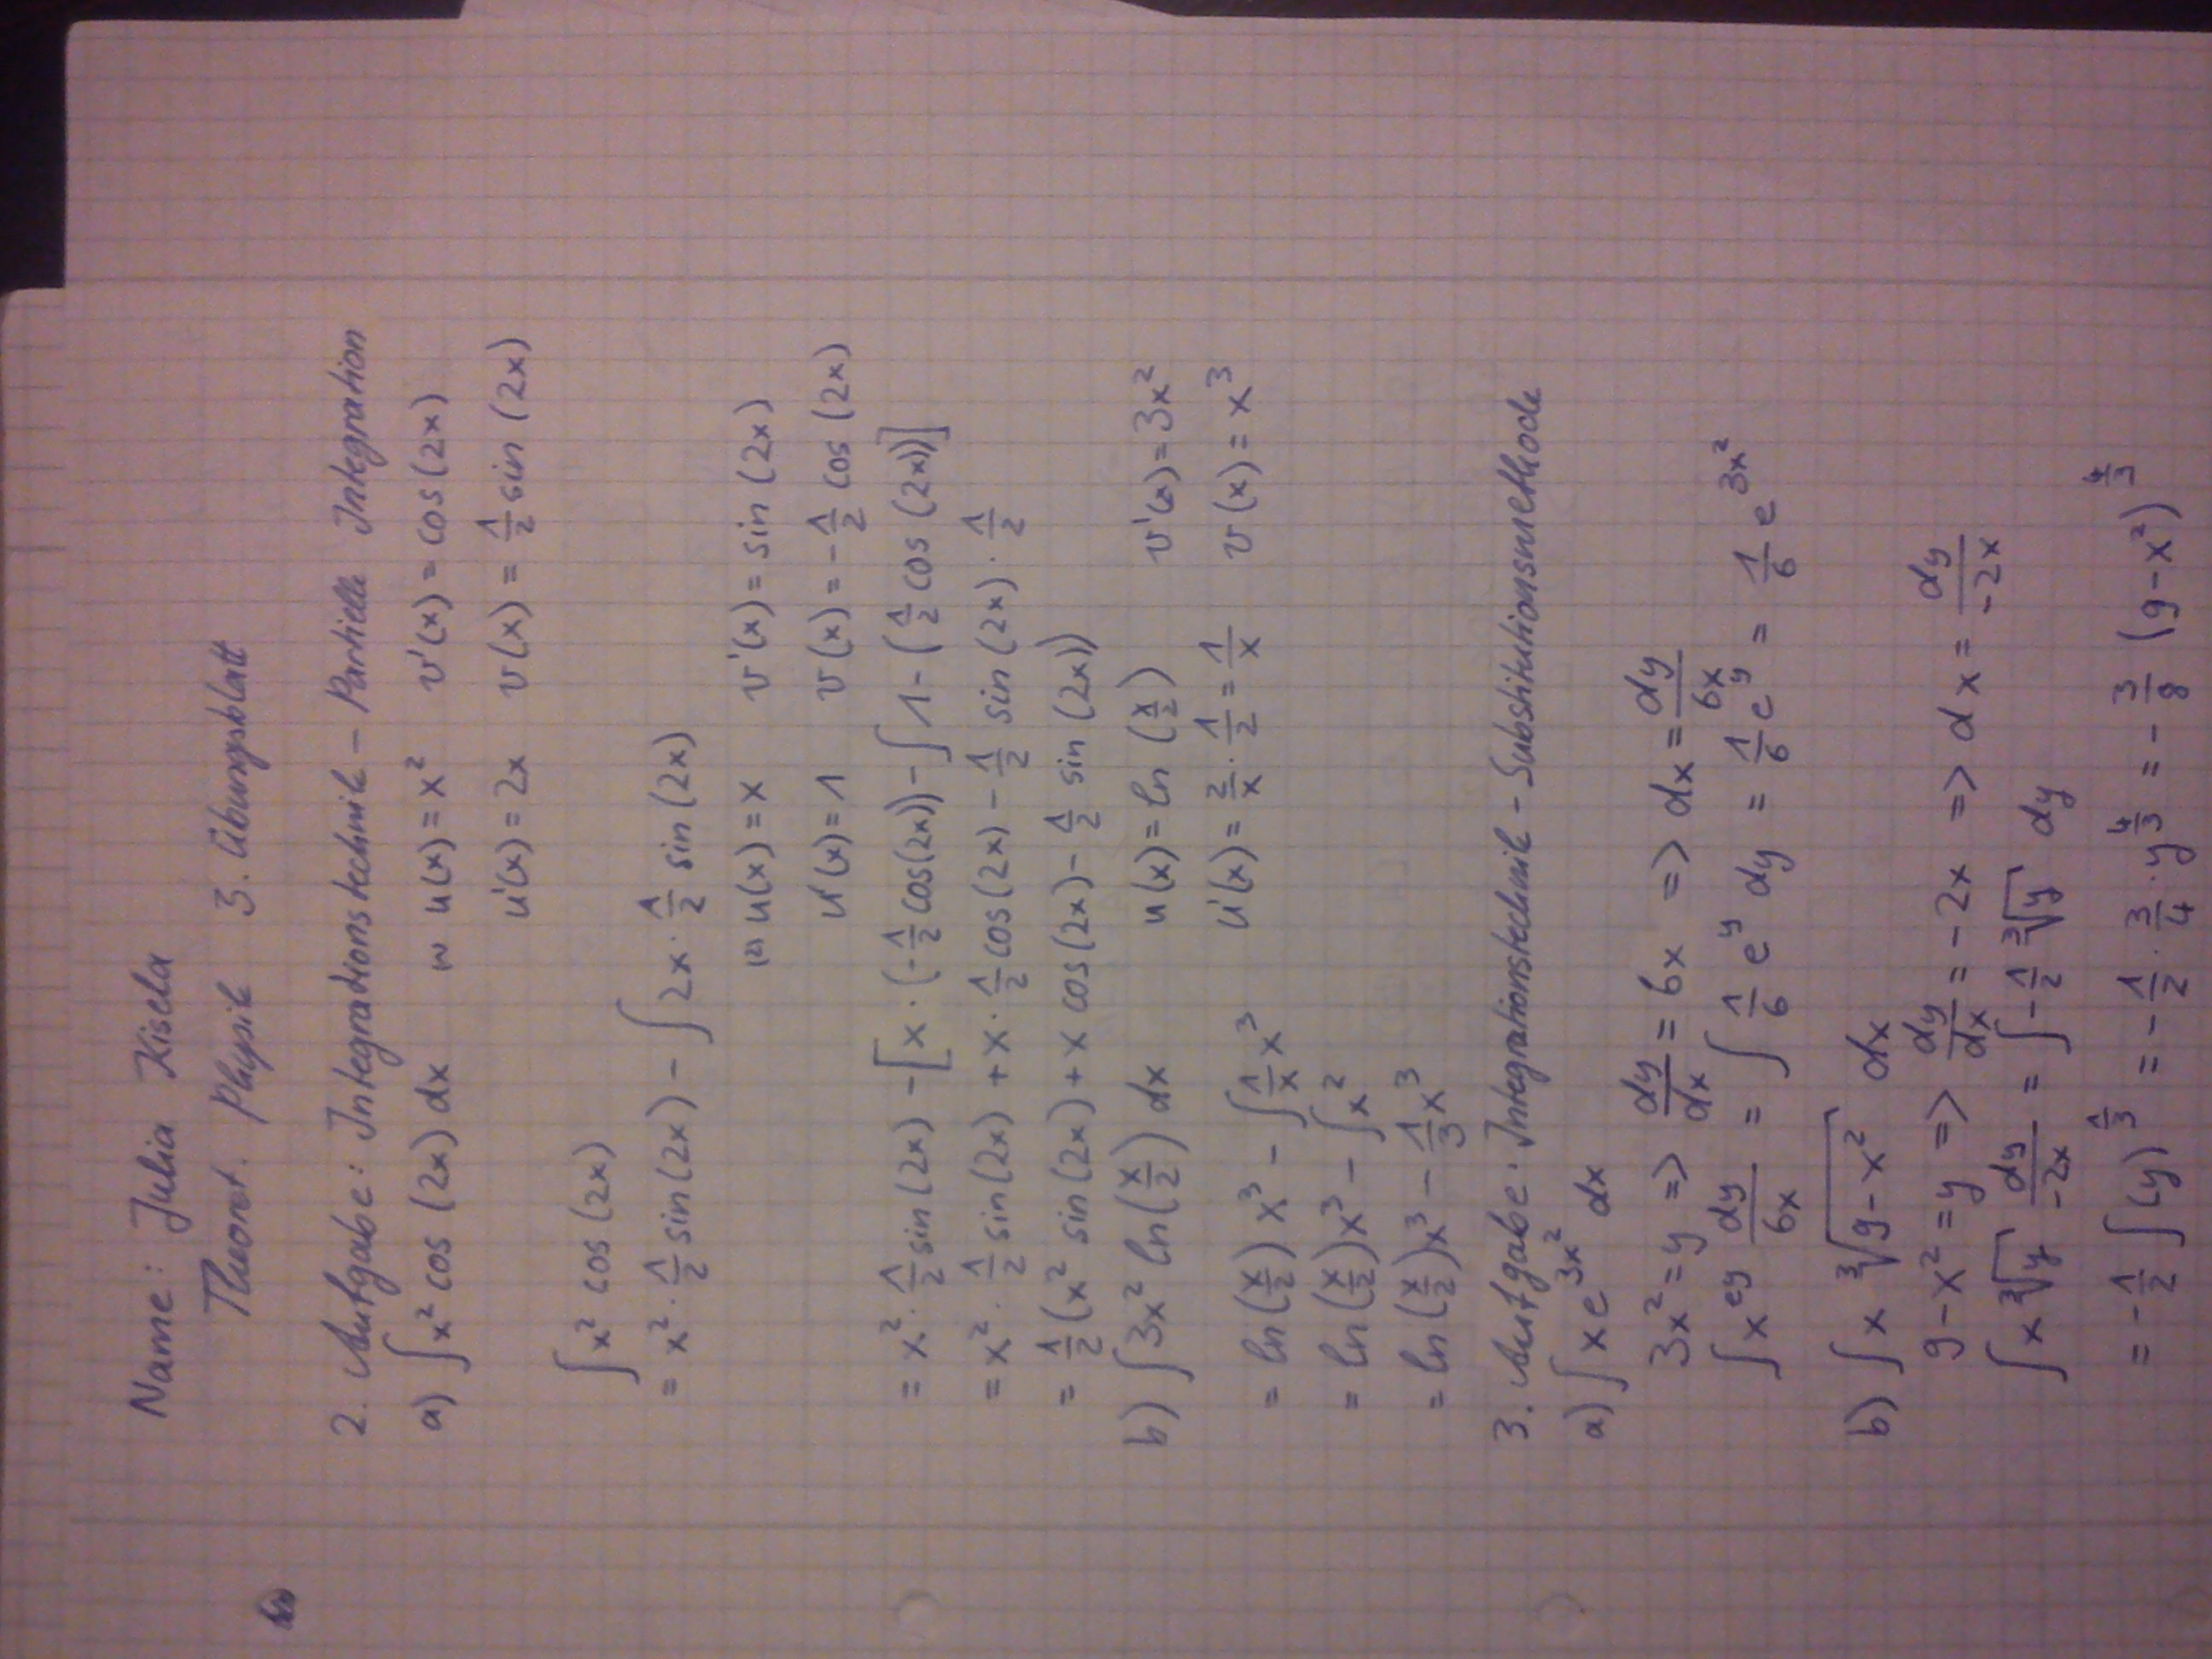 Name: Julia Kisela
Theoret. Physik 3. Übungsblatt
2. Aufgabe: Integrationstechnik – Partielle Integration
a) ∫x² cos (2x) dx (1) u(x) = x² v'(x) = cos (2x)
u'(x) = 2x v(x) = 1/2 sin (2x)
∫x² cos (2x)
= x² · 1/2 sin (2x) - ∫2x · 1/2 sin (2x)
(2) u(x) = x v'(x) = sin (2x)
u'(x) = 1 v(x) = - 1/2 cos (2x)
= x² · 1/2 sin (2x) - [x · (- 1/2 cos(2x)) - ∫1 - (1/2 cos (2x))]
= x² · 1/2 sin (2x) + x · 1/2 cos (2x) - 1/2 sin (2x) · 1/2
= 1/2 (x² sin (2x) + x cos (2x) - 1/2 sin (2x))
b) ∫3x² ln (x/2) dx u(x) = ln (x/2) v'(x) = 3x²
u'(x) = 2/x · 1/2 = 1/x v(x) = x³
= ln (x/2) x³ - ∫ 1/x x³
= ln (x/2) x³ - ∫x²
= ln (x/2) x³ - 1/3 x³
3. Aufgabe: Integrationstechnik - Substitutionsmethode
a) ∫x e^(3x²) dx
3x² = y => dy/dx = 6x => dx = dy/6x
∫x^(ey) dy/6x = ∫ 1/6 e^y dy = 1/6 e^y = 1/6 e^(3x²)
b) ∫x ∛(9-x²) dx
9-x² = y => dy/dx = -2x => dx = dy/-2x
∫x ∛y dy/-2x = ∫- 1/2 ∛y dy
= - 1/2 ∫(y)^(1/3) = - 1/2 · 3/4 · y^(4/3) = - 3/8 (9-x²)^(4/3)